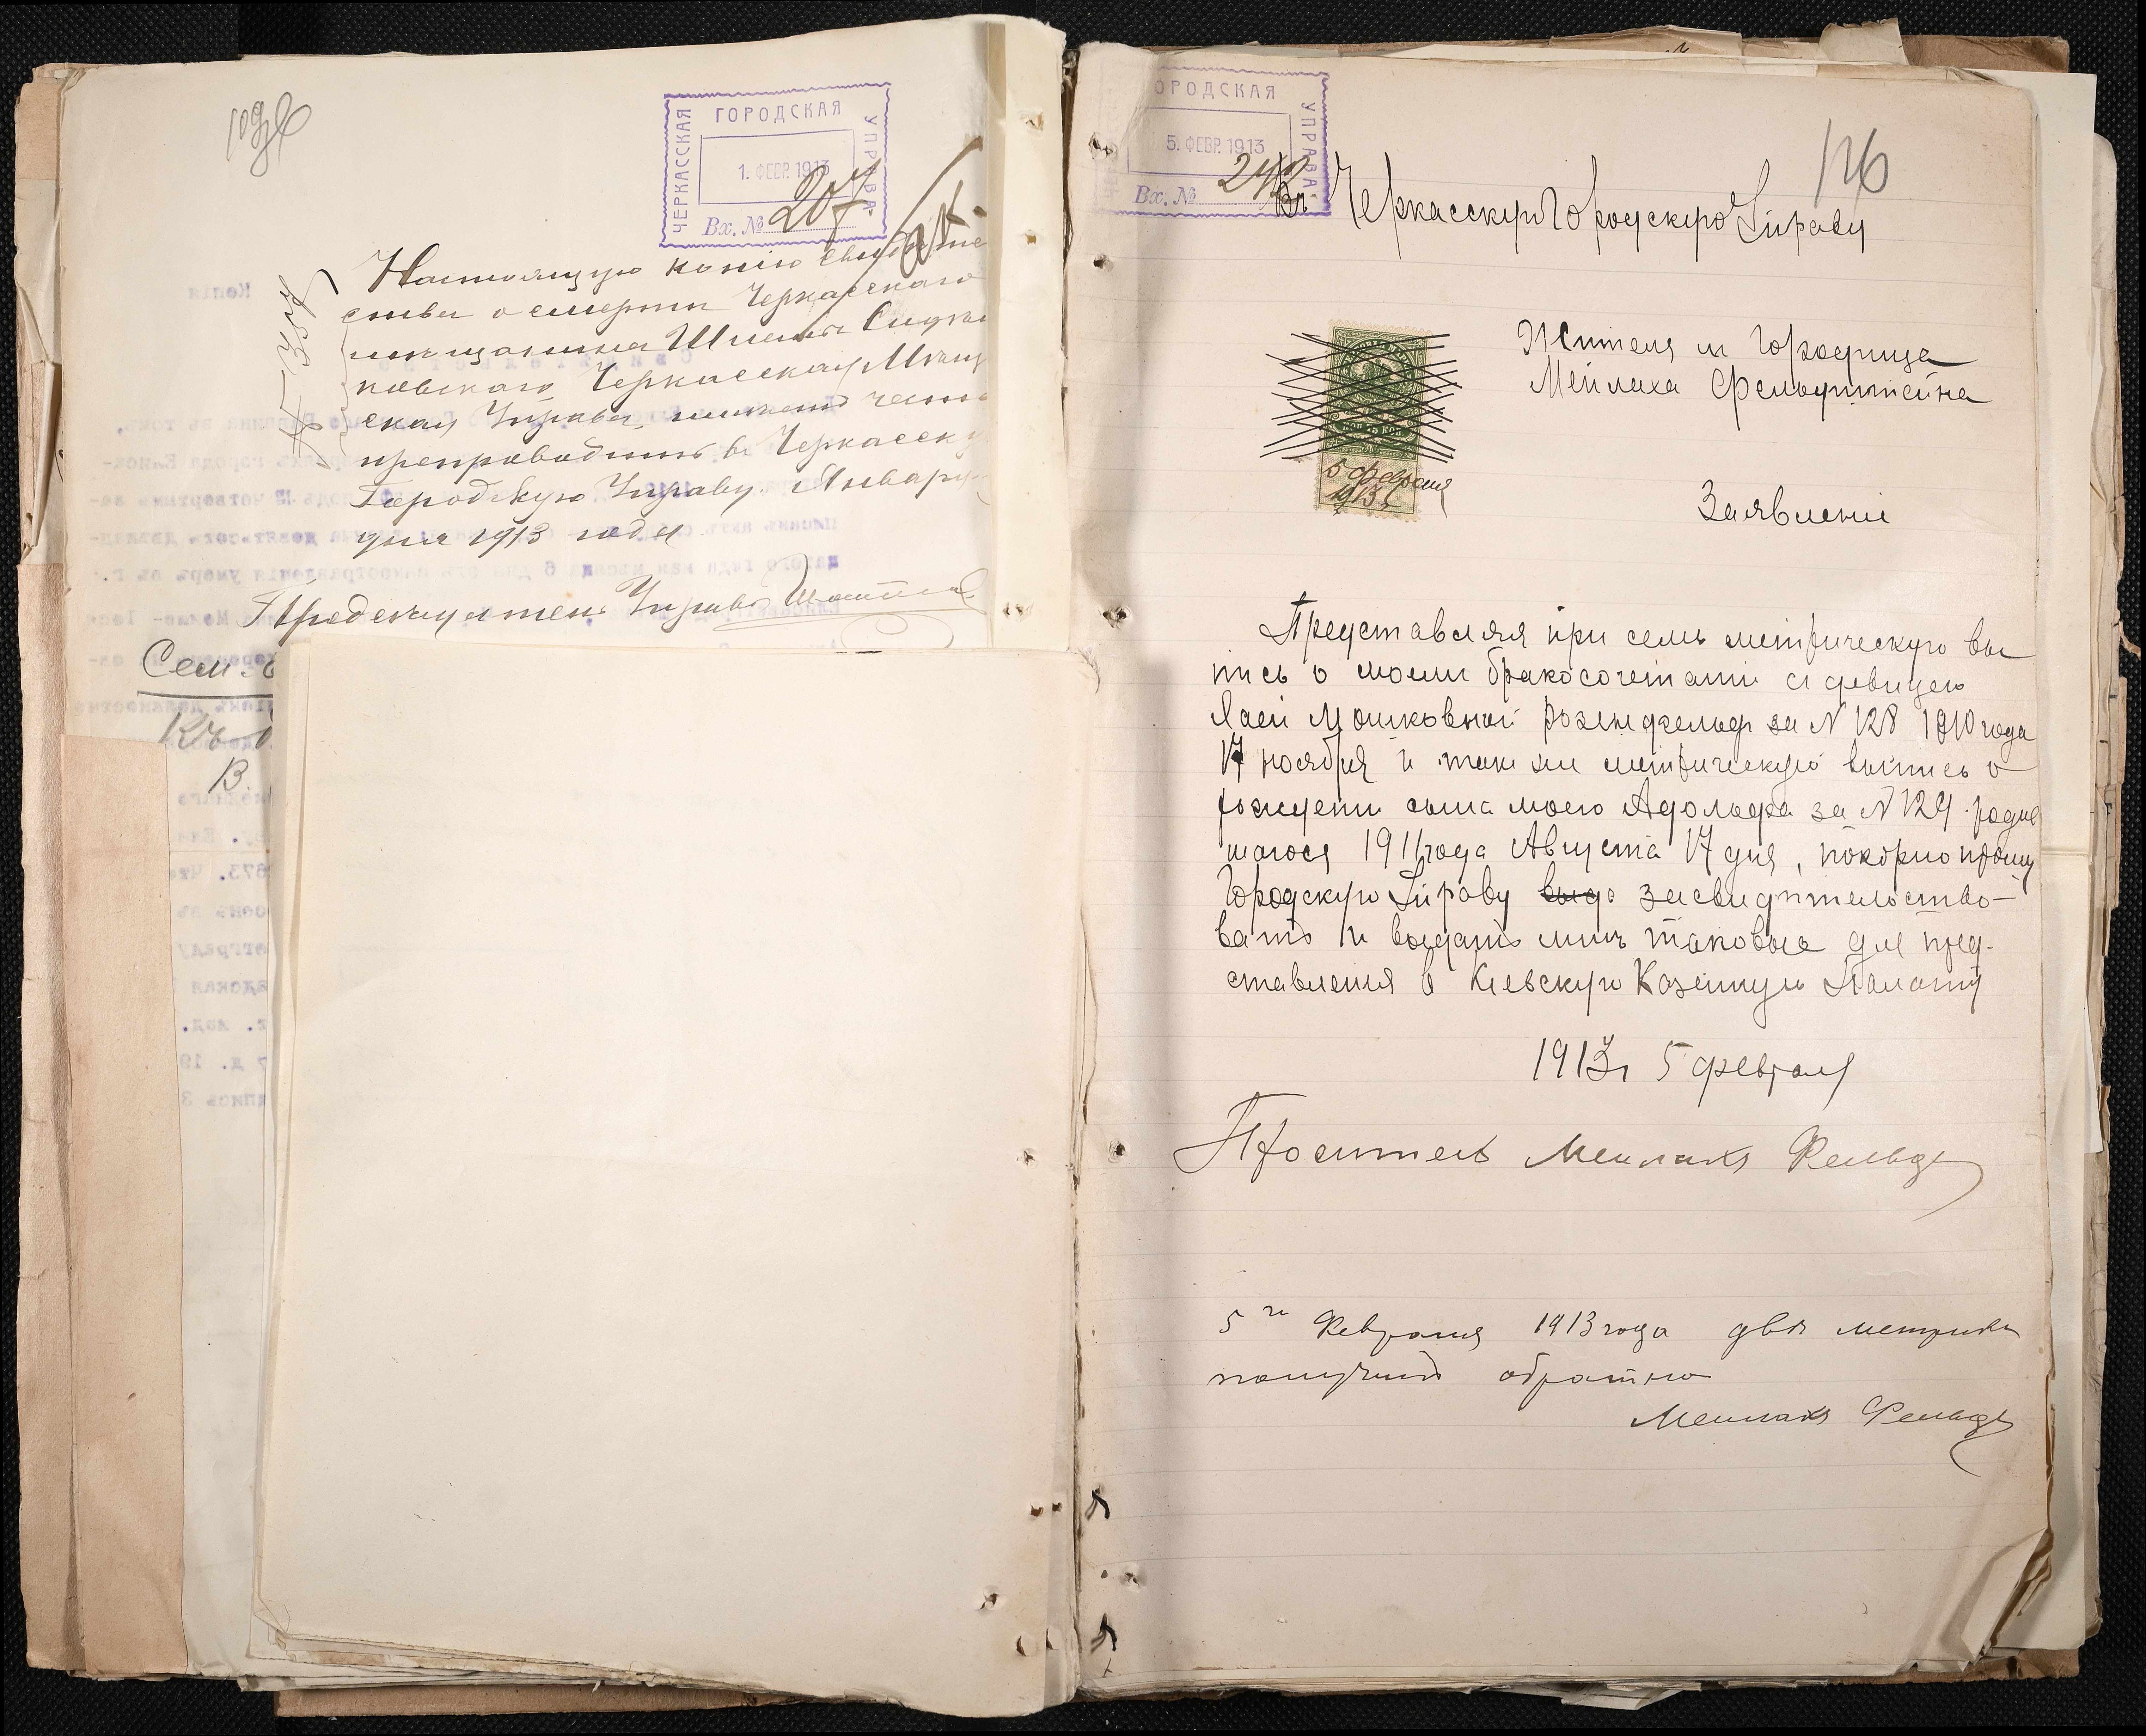 109 об
ЧЕРКАССКАЯ ГОРОДСКАЯ УПРАВА
1. ФЕВР. 1913
Вх. № 207
Настоящую копію свидѣтель
ства о смерти Черкасскаго
мѣщанина Шлемы
ковскаго Черкасская Мѣщан
ская Управа имѣетъ честь
препроводить въ Черкасскую
Городскую Управу. Января
дня 1913 года
Предсѣдатель Управы
Сем.
В.
ГОРОДСКАЯ УПРАВА
5. ФЕВР. 1913
Вх. № 242
126
Въ Черкасскую Городскую Управу
Жителя м Городища
Мейлаха Фельдштейна
5 февраля
1913 г
Заявленіе
Представляя при семъ метрическую вы
пись о моемъ бракосочетаніи съ дѣвицею
Хаей Мошковной Розенфельд за N 128 1910 года
17 ноября и такъ же метрическую выпись о
рожденіи сына моего Адольфа за N 129 родив
шагося 1911 года Августа 17 дня, покорно прошу
Городскую Управу выда засвидѣтельство-
вать и выдать мнѣ таковые для пред-
ставленія в Кіевскую Казенную Палату
1913 г 5 февраля
Проситель Мейлахъ Фельд
5 го Февраля 1913 года двѣ метрики
получилъ обратно
Мейлахъ Фельд